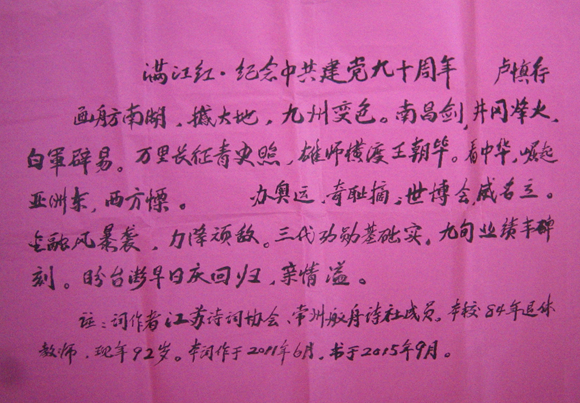 满江红·纪念中共建党九十周年 卢慎行
画舫南湖，撼大地，九州变色。南昌剑，井冈烽火，
白军辟易。万里长征青史照，雄师横渡王朝毕。看中华，崛起
亚洲东，西方慄。 办奥运，奇耻摘。世博会，威名立。
金融风暴袭，力降顽敌。三代功勋基础实。九旬业绩丰碑
刻。盼台澎早日庆回归，亲情溢。
注：词作者江苏诗词协会、常州舣舟诗社成员。本校84年退休
教师，现年92岁。本词作于2011年6月，书于2015年9月。